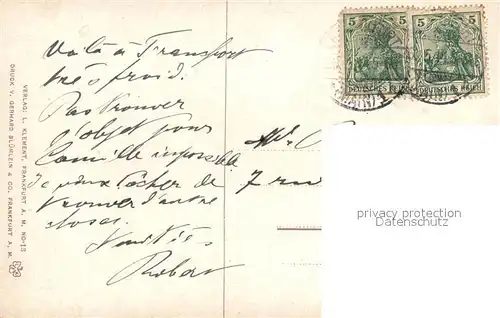 Voilà à Transport
très froid.
Pas trouver
l'objet pour
Camille impossible
Je veux tâcher de
trouver d'autre
choses.
Amitiés
Robert
7 rue
5 5
DEUTSCHES REICH DEUTSCHES REICH
VERLAG: L. KLEMENT, FRANKFURT A. M. NO-13
DRUCK V. GERHARD BLÜMLEIN & CO. FRANKFURT A. M.
privacy protection
Datenschutz